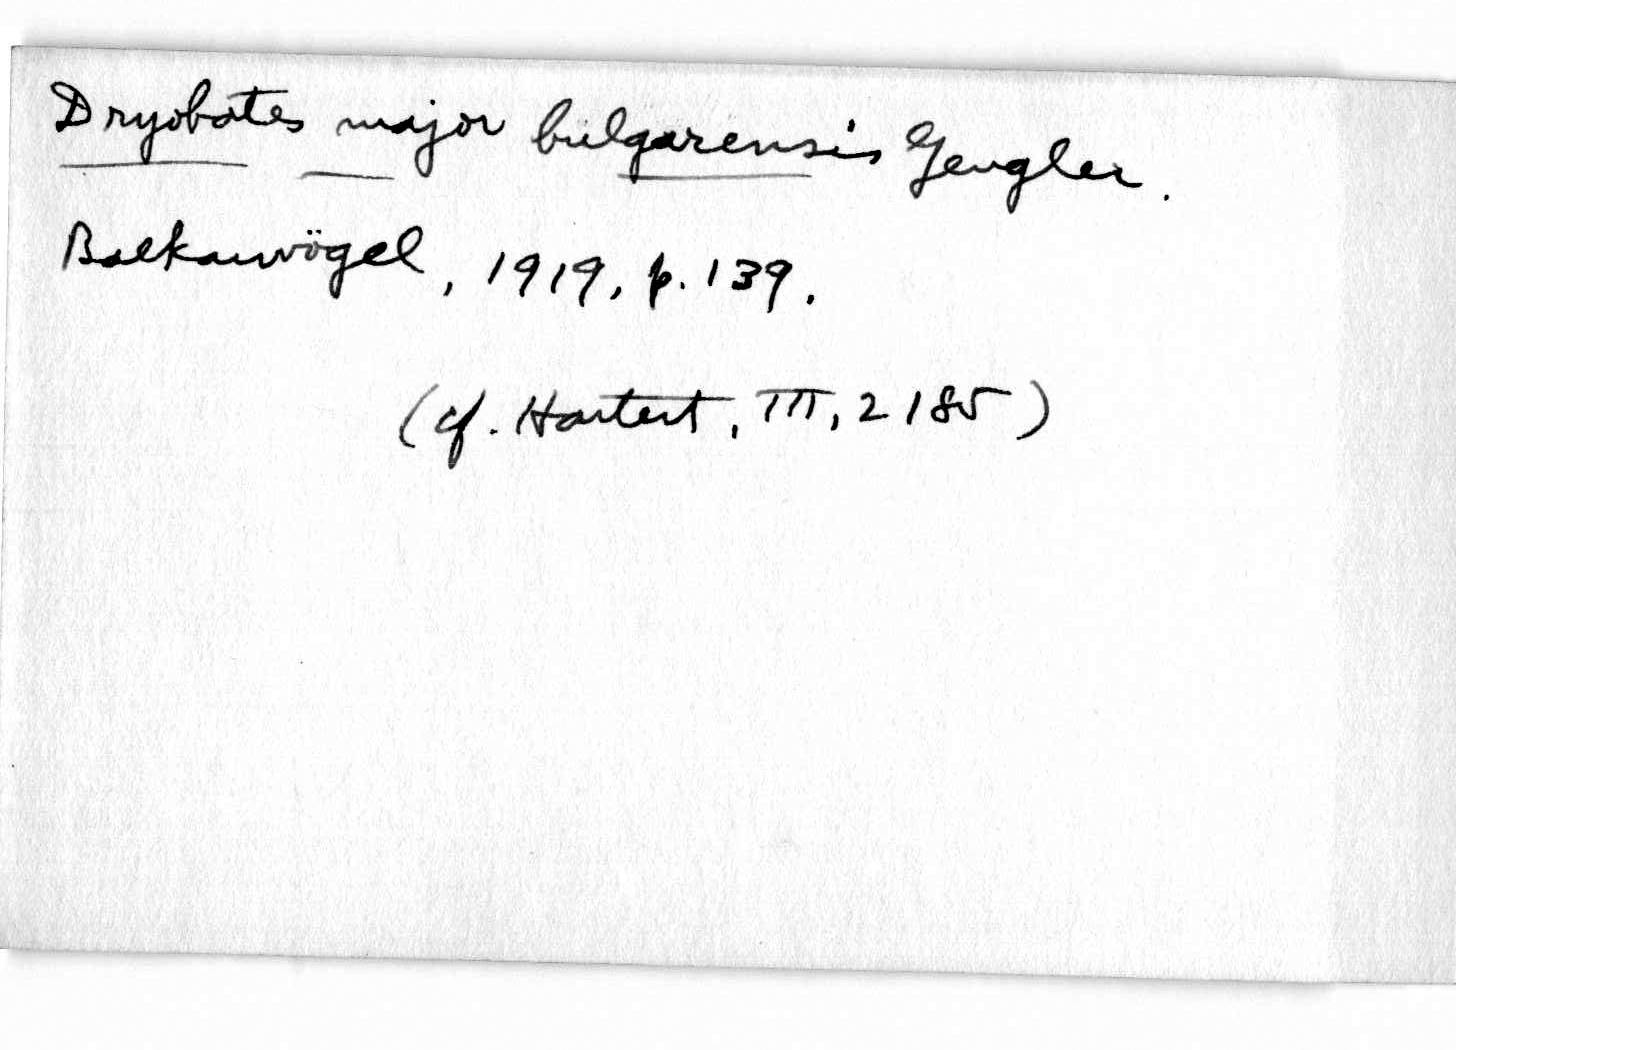 Dryobates major bulgarensis Gengler.
Balkanvögel, 1919, p. 139.
(cf. Hartert, III, 2185)